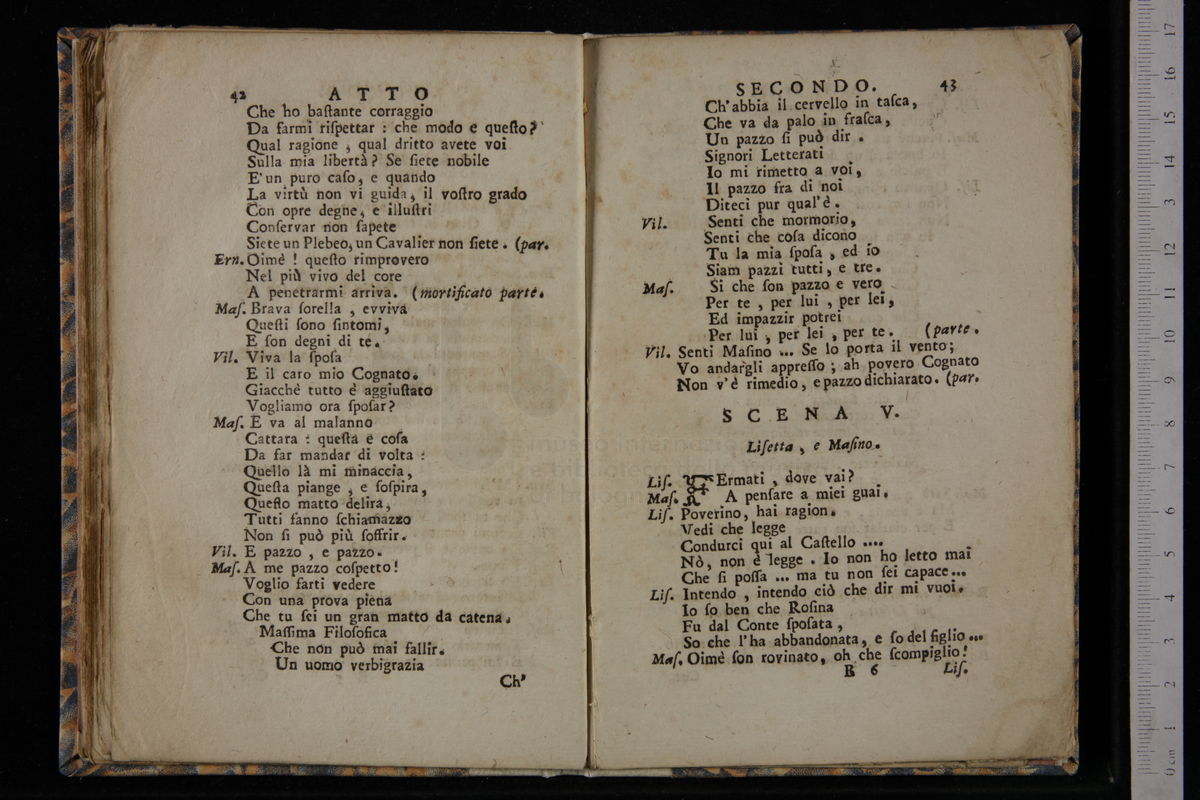 42 ATTO
Che ho baſtante corraggio
Da farmi riſpettar : che modo e queſto?
Qual ragione , qual dritto avete voi
Sulla mia libertà? Se ſiete nobile
E'un puro caſo, e quando
La virtù non vi guida, il voſtro grado
Con opre degne, e illuſtri
Conſervar non ſapete
Siete un Plebeo, un Cavalier non ſiete. (par.
Ern. Oimè ! queſto rimprovero
Nel più vivo del core
A penetrarmi arriva. (mortificato parte.
Maſ. Brava ſorella , evviva
Queſti ſono ſintomi,
E ſon degni di te.
Vil. Viva la ſpoſa
E il caro mio Cognato.
Giacchè tutto é aggiuſtato
Vogliamo ora ſpoſar?
Maſ. E va al malanno
Cattara : queſta e coſa
Da far mandar di volta :
Quello là mi minaccia,
Queſta piange , e ſoſpira,
Queſto matto delira,
Tutti fanno ſchiamazzo
Non ſi può più ſoffrir.
Vil. E pazzo , e pazzo.
Maſ. A me pazzo coſpetto!
Voglio farti vedere
Con una prova piena
Che tu ſei un gran matto da catena.
Maſſima Filoſofica
Che non può mai fallir.
Un uomo verbigrazia
Ch'
SECONDO. 43
Ch'abbia il cervello in taſca,
Che va da palo in fraſca,
Un pazzo ſi può dir .
Signori Letterati
Io mi rimetto a voi,
Il pazzo fra di noi
Diteci pur qual'è.
Vil. Senti che mormorio,
Senti che coſa dicono
Tu la mia ſpoſa , ed io
Siam pazzi tutti, e tre.
Maſ. Si che ſon pazzo e vero
Per te , per lui , per lei,
Ed impazzir potrei
Per lui , per lei , per te. (parte.
Vil. Senti Maſino ... Se lo porta il vento;
Vo andargli appreſſo ; ah povero Cognato
Non v'è rimedio, e pazzo dichiarato. (par.
SCENA V.
Liſetta , e Maſino.
Liſ. FErmati , dove vai?
Maſ. A penſare a miei guai.
Liſ. Poverino, hai ragion.
Vedi che legge
Condurci qui al Caſtello ....
Nò, non è legge . Io non ho letto mai
Che ſi poſſa ... ma tu non ſei capace...
Liſ. Intendo , intendo ciò che dir mi vuoi.
Io ſo ben che Roſina
Fu dal Conte ſpoſata ,
So che l'ha abbandonata, e ſo del figlio...
Maſ. Oimè ſon rovinato, oh che ſcompiglio!
B 6 Liſ.